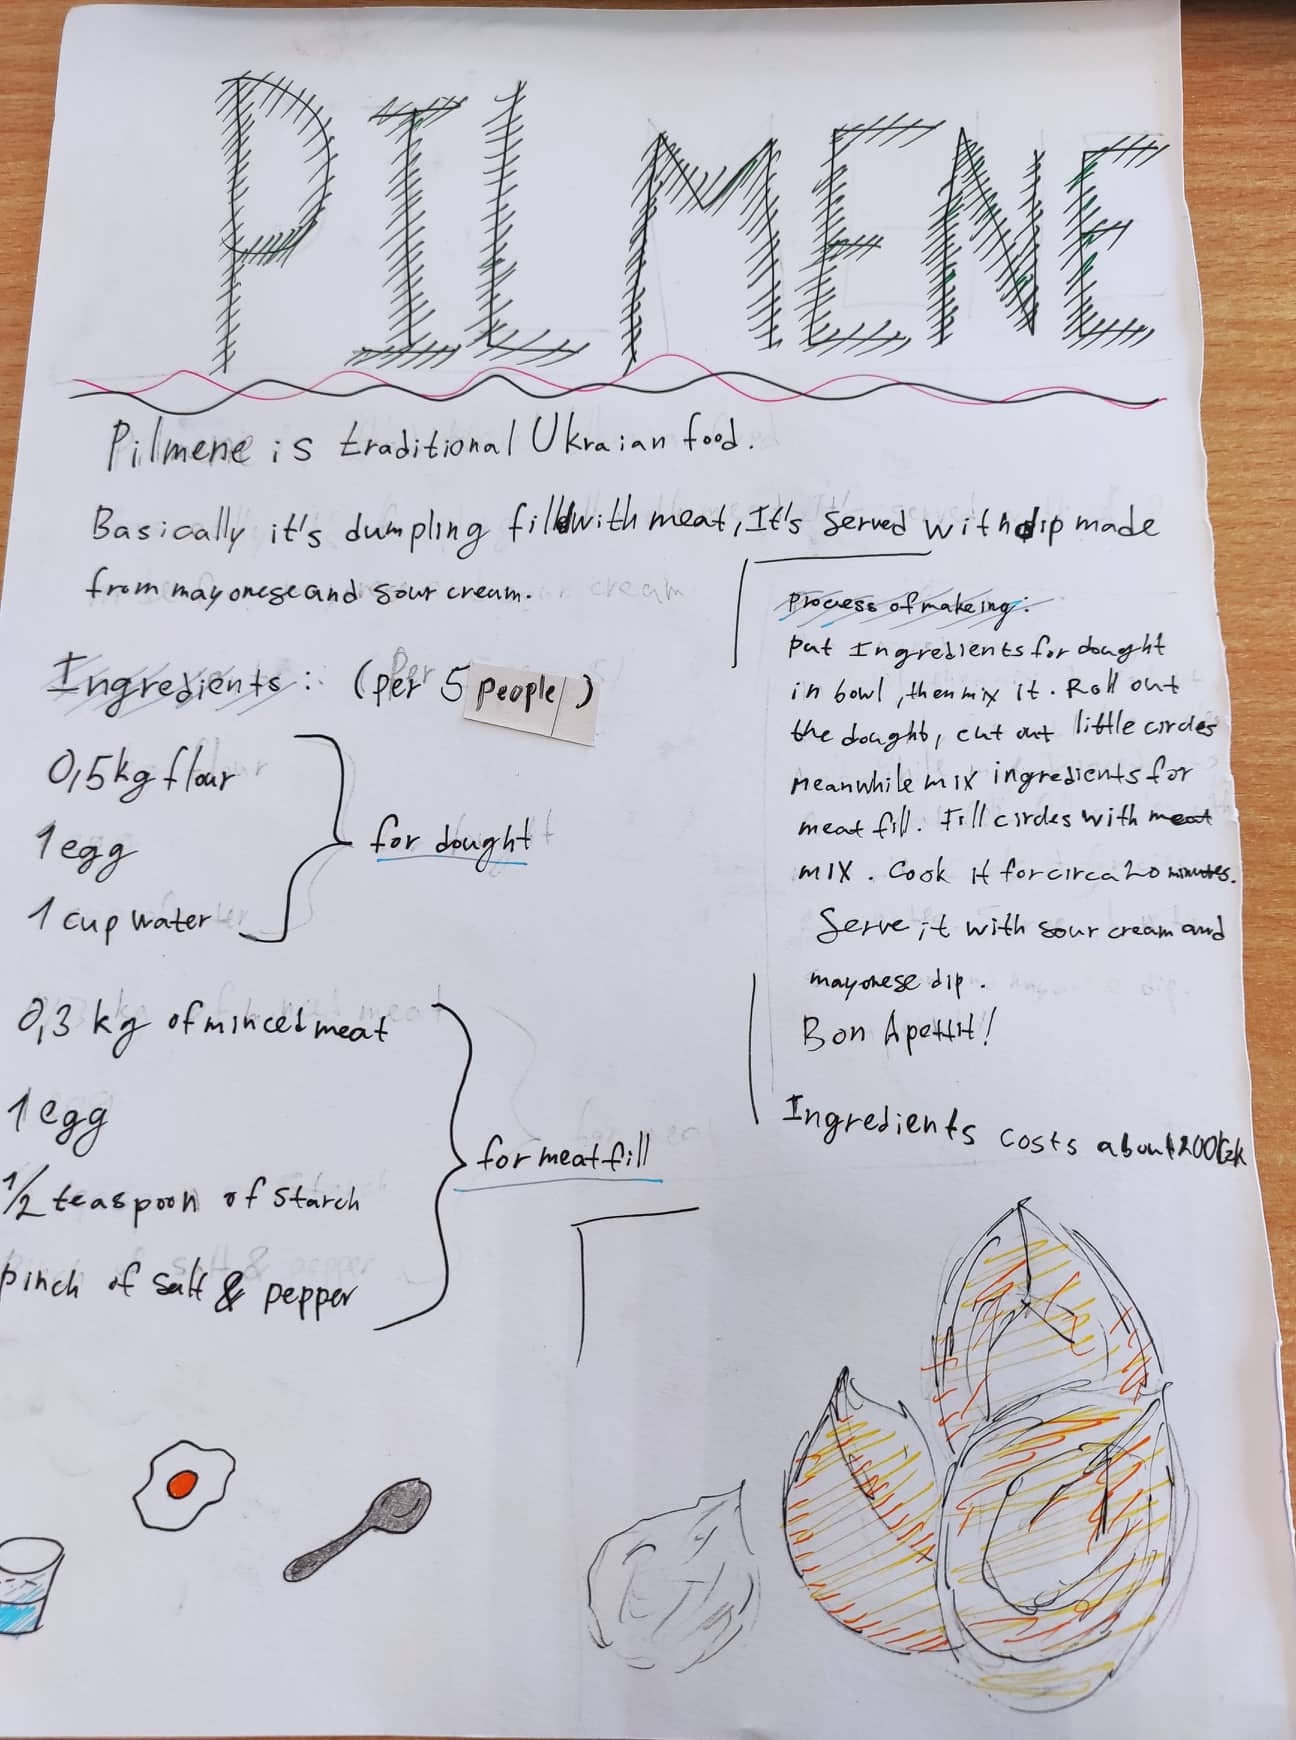 PILMENE
Pilmene is traditional Ukraian food.
Basically it's dumpling filld with meat, It's served with dip made
from mayonese and sour cream.
Ingredients: (per 5 people)
0,5kg flour
1 egg
1 cup water
for dought
0,3 kg of minced meat
1 egg
1/2 teaspoon of starch
pinch of salt & pepper
for meat fill
Process of makeing:
put Ingredients for dought
in bowl, then mix it. Roll out
the dought, cut out little circles
meanwhile mix ingredients for
meat fill. Fill circles with meat
mix. Cook it for circa 20 minutes.
Serve it with sour cream and
mayonese dip.
Bon Apettit!
Ingredients costs about 200 Czk